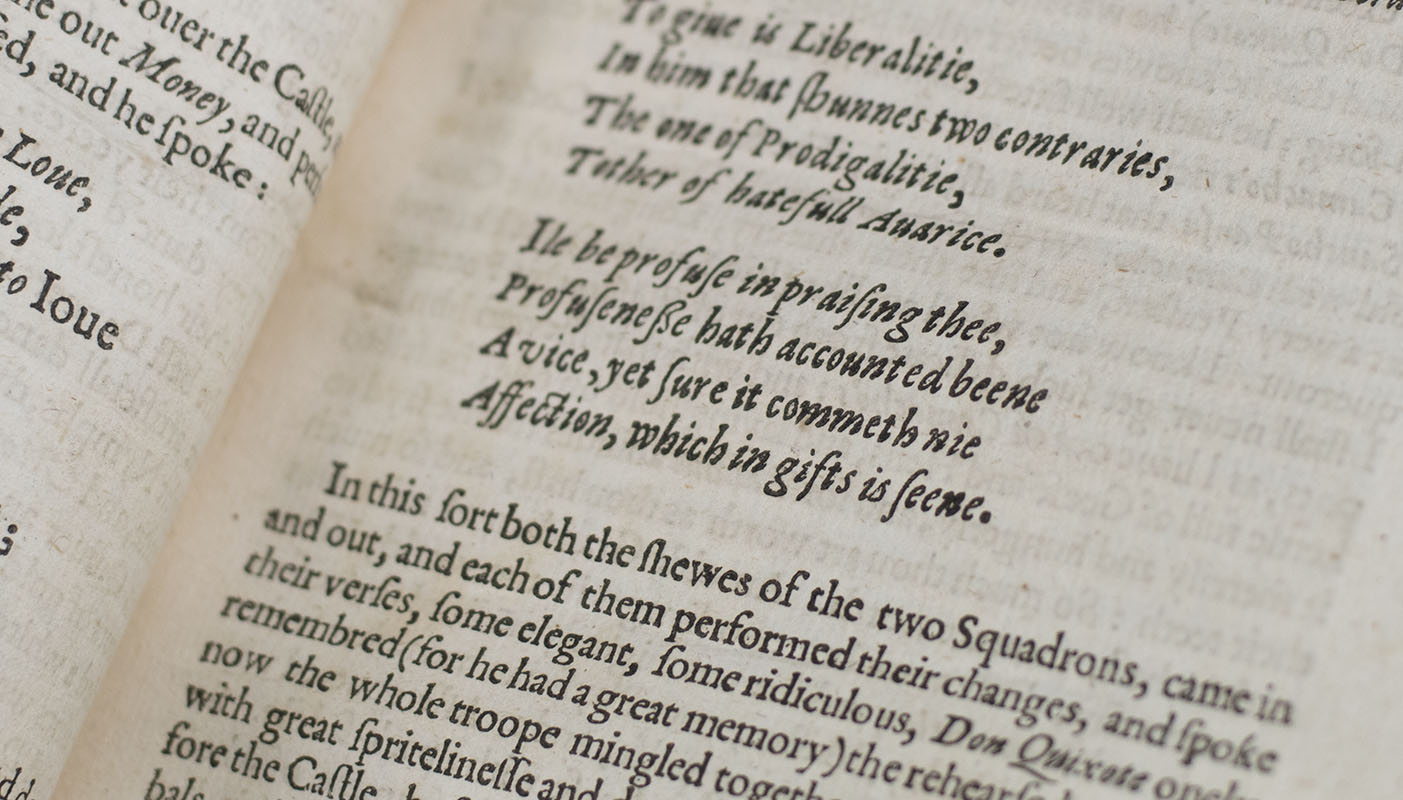 ouer the Caſtle,
me out Money, and
ed, and he ſpoke:
Loue,
to Ioue
To giue is Liberalitie,
In him that ſhunnes two contraries,
The one of Prodigalitie,
Tother of hatefull Auarice.
Ile be profuſe in praiſing thee,
Profuſeneſſe hath accounted beene
A vice, yet ſure it commeth nie
Affection, which in gifts is ſeene.
In this ſort both the ſhewes of the two Squadrons, came in
and out, and each of them performed their changes, and ſpoke
their verſes, ſome elegant, ſome ridiculous, Don Quixote onely
remembred (for he had a great memory) the rehearſ
now the whole troope mingled togeth
with great ſpritelineſſe and
fore the Caſtle,